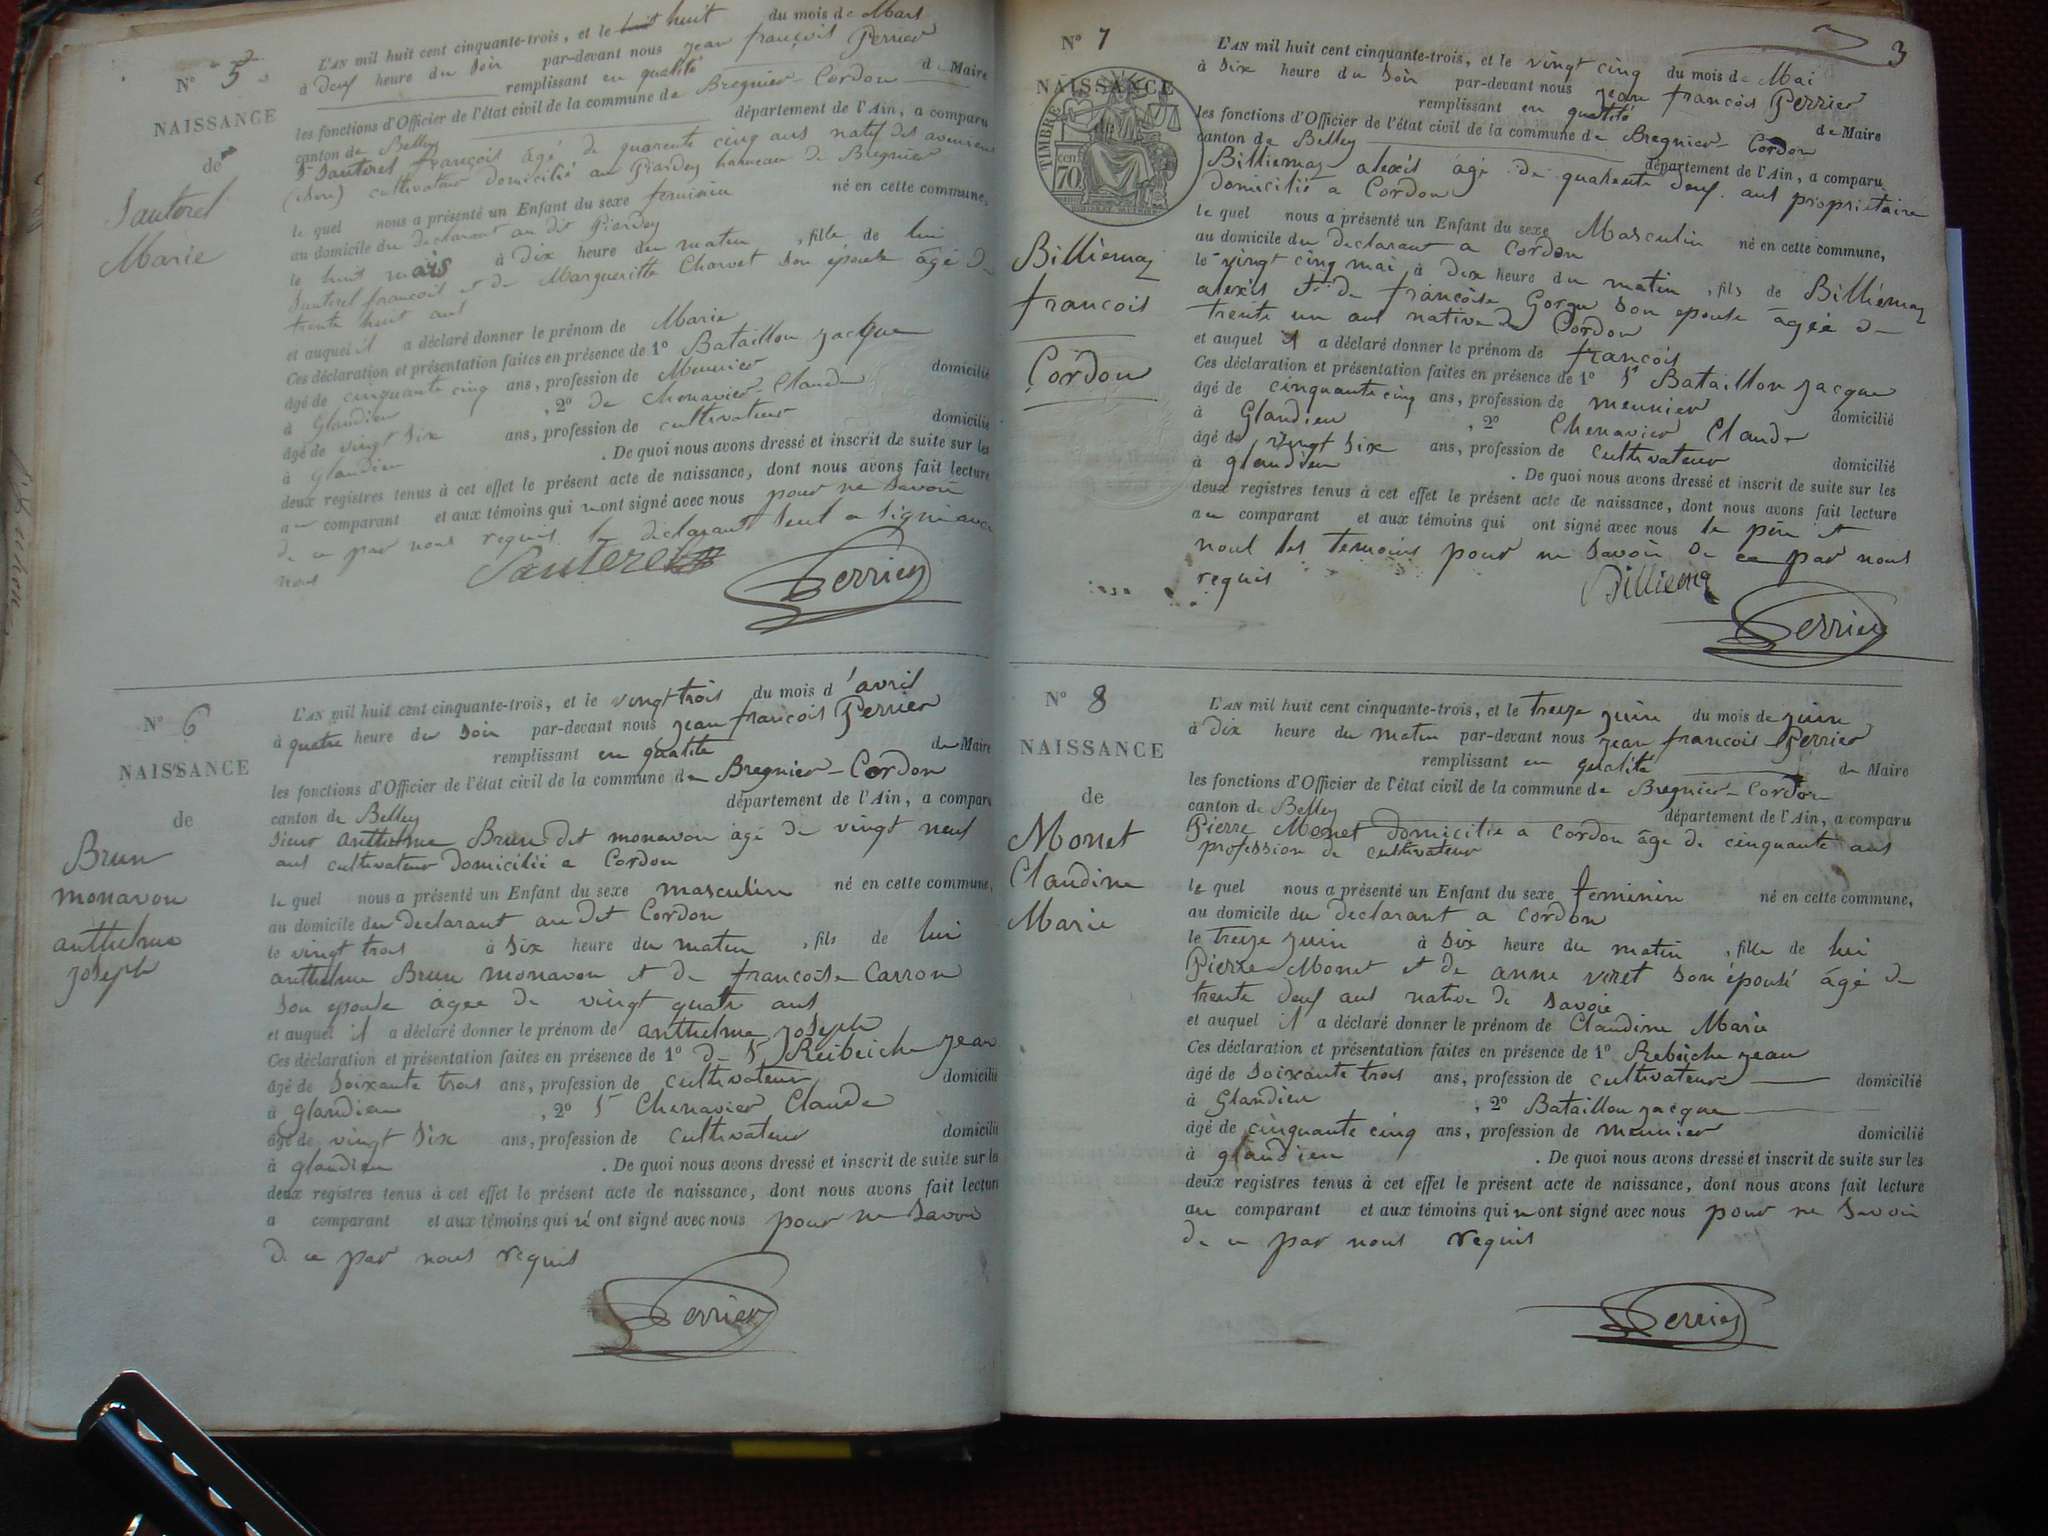 N° 5
NAISSANCE
de
Sauterel
Marie
L'AN mil huit cent cinquante-trois, et le huit du mois de Mars
à deux heure du Soir par-devant nous jean françois Perrier
remplissant en qualité de Maire
les fonctions d'Officier de l'état civil de la commune de Bregnier-Cordon
canton de Belley département de l'Ain, a comparu
Sr Sauterel françois âgé de quarente cinq ans natif des avenieres
(Isere) cultivateur domicilié au hameau de Bregnier
le quel nous a présenté un Enfant du sexe feminin né en cette commune,
au domicile du declarant au dit
le huit mars à dix heure du matin , fille de lui
Sauterel françois et de Margueritte Charvet son épouse âgé de
trente huit ans
et auquel il a déclaré donner le prénom de Marie
Ces déclaration et présentation faites en présence de 1° Bataillon jacque
âgé de cinquante cinq ans, profession de Meunier domicilié
à Glandieu , 2° de Chenavier Claude
âgé de vingt six ans, profession de cultivateur domicilié
à Glandieu . De quoi nous avons dressé et inscrit de suite sur les
deux registres tenus à cet effet le présent acte de naissance, dont nous avons fait lecture
au comparant et aux témoins qui n'ont signé avec nous pour ne savoir
de ce par nous requis le declarant seul a signé avec
nous Sauterel Perrier
N° 6
NAISSANCE
de
Brun
monavon
anthelme
joseph
L'AN mil huit cent cinquante-trois, et le vingt trois du mois d'avril
à quatre heure du soir par-devant nous jean francois Perrier
remplissant en qualité de Maire
les fonctions d'Officier de l'état civil de la commune de Bregnier-Cordon
canton de Belley département de l'Ain, a comparu
sieur anthelme Brun dit monavon agé de vingt neuf
ans cultivateur domicilié a Cordon
le quel nous a présenté un Enfant du sexe masculin né en cette commune,
au domicile du declarant au dit Cordon
le vingt trois à six heure du matin , fils de lui
anthelme Brun monavon et de francoise Carron
son epouse agée de vingt quatre ans
et auquel il a déclaré donner le prénom de anthelme joseph
Ces déclaration et présentation faites en présence de 1° de Sr Reibeiche jean
âgé de soixante trois ans, profession de cultivateur domicilié
à glandieu , 2° Sr Chenavier Claude
âgé de vingt six ans, profession de cultivateur domicilié
à glandieu . De quoi nous avons dressé et inscrit de suite sur les
deux registres tenus à cet effet le présent acte de naissance, dont nous avons fait lecture
a comparant et aux témoins qui n'ont signé avec nous pour ne savoir
de ce par nous requis
Perrier
3
N° 7
NAISSANCE
TIMBRE
70 cen
Billiemaz
francois
Cordon
L'AN mil huit cent cinquante-trois, et le vingt cinq du mois de Mai
à six heure du soir par-devant nous jean francois Perrier
remplissant en qualité de Maire
les fonctions d'Officier de l'état civil de la commune de Bregnier-Cordon
canton de Belley département de l'Ain, a comparu
Billiemaz alexis agé de quarente deux ans propriétaire
domicilié a Cordon
le quel nous a présenté un Enfant du sexe Masculin né en cette commune,
au domicile du declarant a Cordon
le vingt cinq mai à dix heure du matin , fils de Billiemaz
alexis et de françoise son epouse âgée de
trente un ans native de Cordon
et auquel il a déclaré donner le prénom de francois
Ces déclaration et présentation faites en présence de 1° Sr Bataillon jacque
âgé de cinquante cinq ans, profession de meunier domicilié
à Glandieu , 2° Chenavier Claude
âgé de vingt six ans, profession de cultivateur domicilié
à glandieu . De quoi nous avons dressé et inscrit de suite sur les
deux registres tenus à cet effet le présent acte de naissance, dont nous avons fait lecture
au comparant et aux témoins qui ont signé avec nous le père et
nous les temoins pour ne savoir de ce par nous
requis Billiemaz
Perrier
N° 8
NAISSANCE
de
Monet
Claudine
Marie
L'AN mil huit cent cinquante-trois, et le treize juin du mois de juin
à dix heure du matin par-devant nous jean francois Perrier
remplissant en qualité de Maire
les fonctions d'Officier de l'état civil de la commune de Bregnier-Cordon
canton de Belley département de l'Ain, a comparu
Pierre Monet domicilié a Cordon âgé de cinquante ans
profession de cultivateur
le quel nous a présenté un Enfant du sexe feminin né en cette commune,
au domicile du declarant a Cordon
le treize juin à six heure du matin , fille de lui
Pierre Monet et de anne viret son épouse âgé de
trente deux ans native de Savoie
et auquel il a déclaré donner le prénom de Claudine Marie
Ces déclaration et présentation faites en présence de 1° Rebeiche jean
âgé de soixante trois ans, profession de cultivateur domicilié
à Glandieu , 2° Bataillon jacque
âgé de cinquante cinq ans, profession de meunier domicilié
à glandieu . De quoi nous avons dressé et inscrit de suite sur les
deux registres tenus à cet effet le présent acte de naissance, dont nous avons fait lecture
au comparant et aux témoins qui n'ont signé avec nous pour ne savoir
de ce par nous requis
Perrier